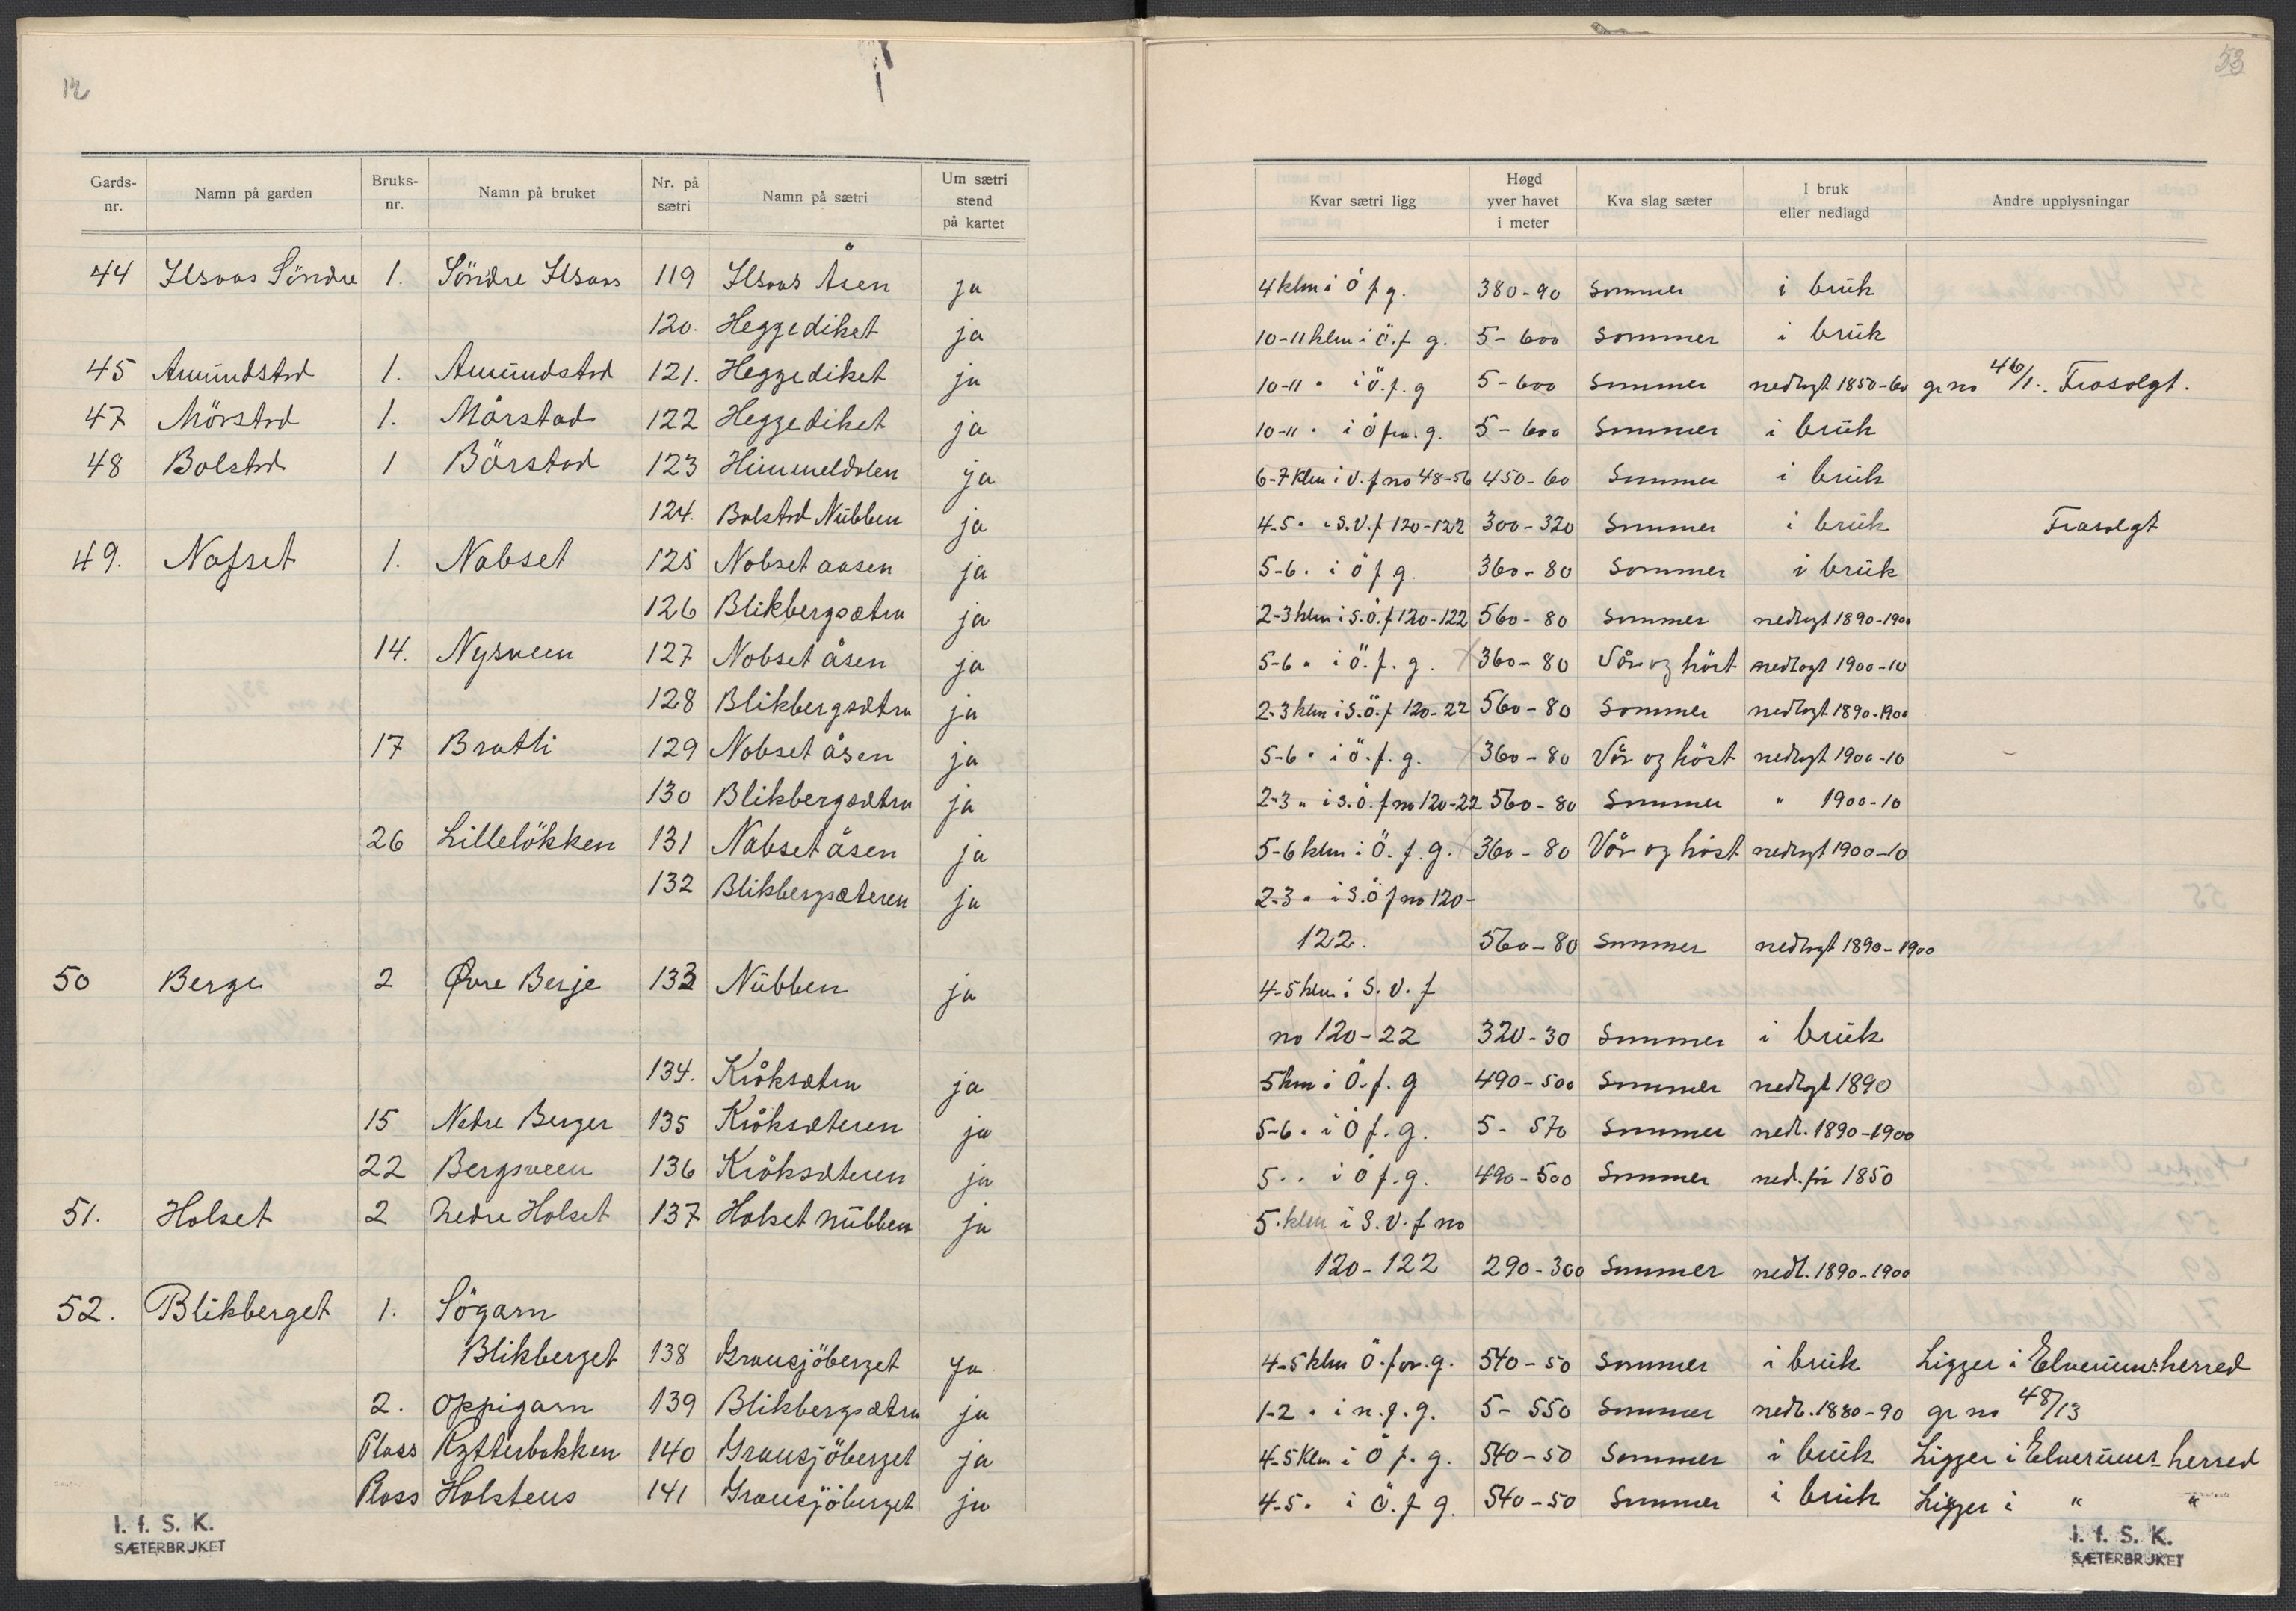 12
53
Gards-nr. Namn på garden Bruks-nr. Namn på bruket Nr. på sætri Namn på sætri Um sætri stend på kartet Kvar sætri ligg Høgd yver havet i meter Kva slag sæter I bruk eller nedlagd Andre upplysningar
44 Ilsaas Söndre 1. Söndre Ilsaas 119 Ilsaas Åsen ja 4 klm i Ö f g. 380-90 Sommer i brük
120. Heggediket ja 10-11 klm i Ö. f g. 5-600 Sommer i brük
45 Amündstad 1. Amündstad 121. Heggediket ja 10-11 " i Ö. f. g 5-600 Sommer nedlagt 1850-60 gr no 46/1. Frasolgt.
47 Mörstad 1. Mörstad 122 Heggediket ja 10-11 " i Ö fra. g. 5-600 Sommer i brük
48 Bolstad 1 Börstad 123 Himmeldalen ja 6-7 klm i V. f no 48-56 450-60 Sommer i brük
124. Bolstad Nübben ja 4-5 " i S.V. f 120-122 300-320 Sommer i brük Frasolgt
49. Nafset 1. Nabset 125 Nabset aasen ja 5-6 " i Ö f g. 360-80 Sommer i brük
126 Blikbergsætra ja 2-3 klm i S.Ö. f 120-122 560-80 Sommer nedlagt 1890-1900
14. Nysveen 127 Nabset åsen ja 5-6 " i Ö. f. g. 360-80 Vår og höst nedlagt 1900-10
128 Blikbergsætra ja 2-3 klm i S.Ö. f 120-22 560-80 Sommer nedlagt 1890-1900
17 Bratli 129 Nabset åsen ja 5-6 " i Ö. f. g. 360-80 Vår og höst nedlagt 1900-10
130 Blikbergsætra ja 2-3 " i S.Ö. f no 120-22 560-80 Sommer " 1900-10
26 Lillelökken 131 Nabset åsen ja 5-6 klm i Ö. f. g. 360-80 Vår og höst nedlagt 1900-10
132 Blikbergsæteren ja 2-3 " i S.Ö f no 120-
122. 560-80 Sommer nedlagt 1890-1900
50 Berge 2 Øvre Berje 133 Nübben ja 4-5 klm i S. V. f
no 120-22 320-30 Sommer i brük
134. Kråksætra ja 5 km i Ö. f. g 490-500 Sommer nedlagt 1890
15 Nedre Berger 135 Kråksæteren ja 5-6 " i Ö f. g. 5-570 Sommer nedl. 1890-1900
22 Bergsveen 136 Kråksæteren ja 5 " i Ö f. g. 490-500 Sommer ned. för 1850
51. Holset 2 Nedre Holset 137 Holset nübben ja 5 klm i S. V. f no
120-122 290-300 Sommer nedl. 1890-1900
52. Blikberget 1. Sögarn
Blikberget 138 Gransjöberget ja 4-5 klm Ö. for. g. 540-50 Sommer i brük Ligger i Elverüms herred
2. Oppigarn 139 Blikbergsætra ja 1-2 " i n. f. g. 5-550 Sommer nedl. 1880-90 gr no 48/13
Plass Kytterbakken 140 Gransjöberget ja 4-5 klm i Ö f. g. 540-50 Sommer i brük Ligger i Elverüms herred
Plass Holstens 141 Gransjöberget ja 4-5 " i Ö. f g. 540-50 Sommer i brük Ligger i " "
I. f. S. K.
SÆTERBRUKET
I. f. S. K.
SÆTERBRUKET